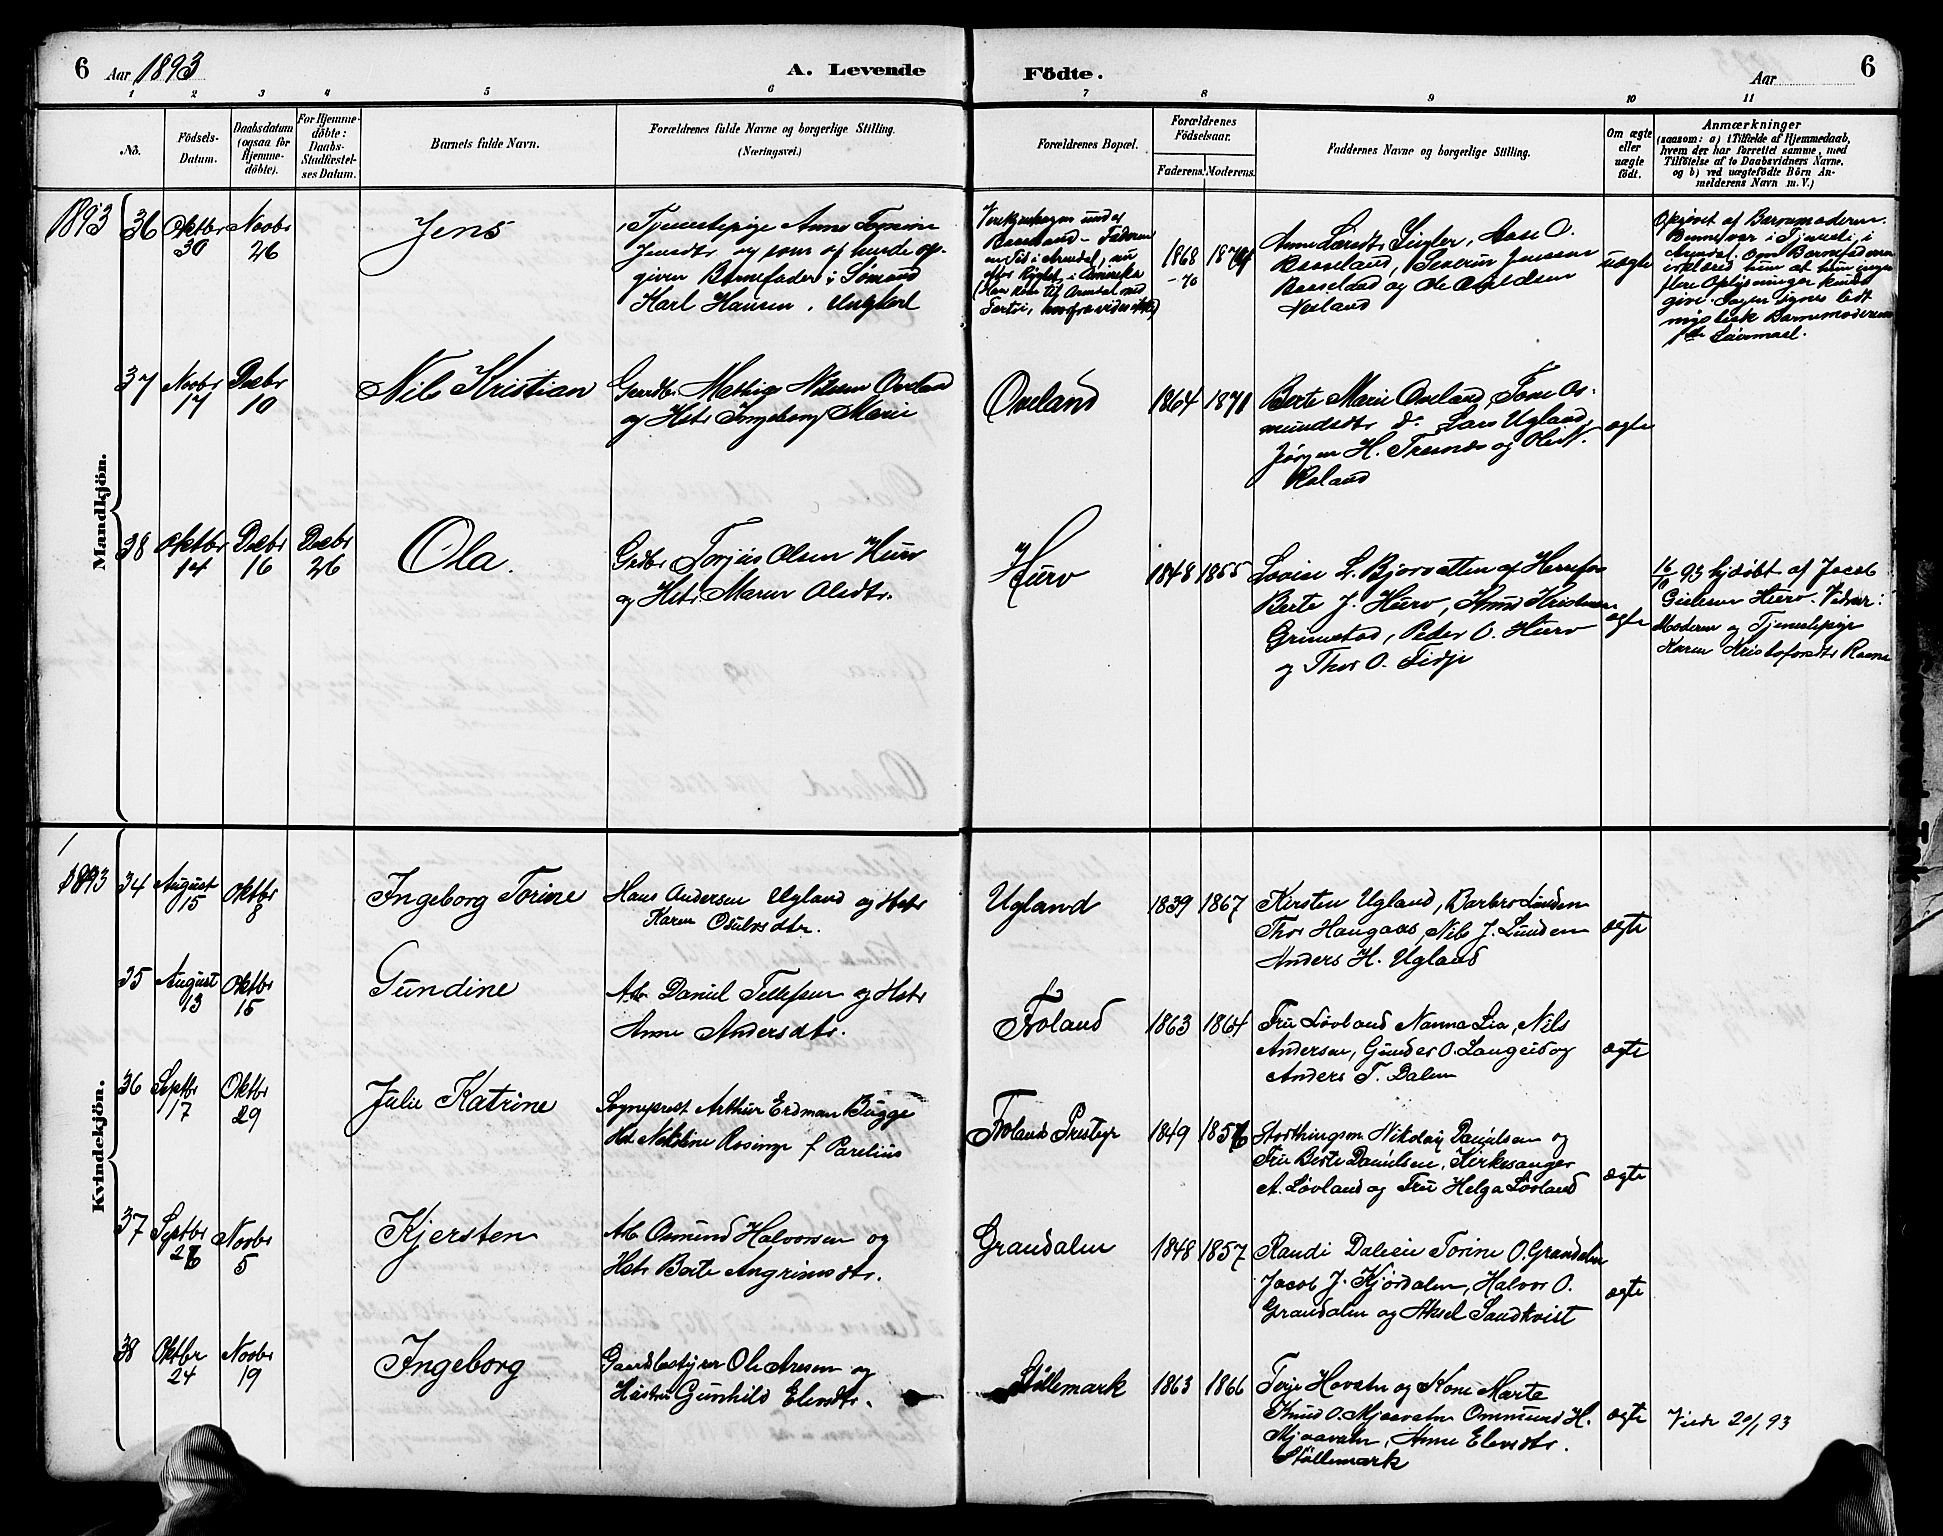 6 Aar 1893 A. Levende Födte. Aar 6
1 2 3 4 5 6 7 8 9 10 11
No.
Födsels-
Datum.
Daabsdatum
(ogsaa for
Hjemme-
döbte).
For Hjemme-
döbte:
Daabs-
Stadfæstel-
ses Datum.
Barnets fulde Navn.
Forældrenes fulde Navne og borgerlige Stilling.
(Næringsvei.)
Forældrenes Bopæl.
Forældrenes
Födselsaar.
Faderens. Moderens.
Faddernes Navne og borgerlige Stilling.
Om ægte
eller
uægte
födt.
Anmærkninger
(saasom: a) i Tilfælde af Hjemmedaab,
hvem der har forrettet samme, med
Tilföielse af to Daabsvidners Navne,
og b) ved uægtefödte Börn An-
melderens Navn m. V.)
Mandkjön.
1893 36 Oktbr
30
Novbr
26
Jens
Tjenestepige Anne
Jensdtr og som af hende op-
given Barnefader: Sömand
Karl Hansen, Ungkarl
under
- Faderen
en Tid i Arendal, nu
efter Rygtet i Amerika
(Han kom til Arendal med
1868
-70
Anne, Aase O.
Severin Jensen
og Ole
uægte
Opgivet af Barnemoderen.
Denne var i Tjeneste i
Arendal. Om Barnefaderen
hun at hun ingen
flere Oplysninger kunde
give. Sagen synes lidt
Barnemoderens
Leiermaal.
37 Novbr
17
Decbr
10
Nils Kristian
Gardbr Mathias Nilsen Oveland
og Hstr Ingeborg Marie
Oveland
1864 1871
Berte Marie Oveland, Tone Os-
mundsdtr do Lars Ugland
Jörgen H. og Ole N.
ægte
38 Oktbr
14
Decbr
16
Decbr
26
Ola.
Gdbr Torjus Olsen Hurv
og Hstr Maren Olsdtr.
Hurv
1848 1855
Lovise L. Bjorvatten af Herrefos
Berte J. Hurv, Knud Kristensen
Grimstad, Peder O. Hurv
og Thor O. Tidje
ægte
16/10 93 hjdöbt af Jacob
Hurv. Vidner:
Moderen og Tjenestepige
Karen Kristofersdtr
Kvindekjön.
1893 34 August
15
Oktbr
8
Ingeborg Torine
Hans Andersen Ugland og Hstr
Karen Osulvsdtr.
Ugland
1839 1867
Kirsten Ugland, Barbro Lunden
Thor Haugaas, Nils J. Lunden
Anders H. Ugland
ægte
35 August
13
Oktbr
15
Gundine
Arb. Daniel Tellefsen og Hstr
Anne Andersdtr.
Froland
1863 1864
Fru Lövland Nanna Lia, Nils
Andersen, Gunder O. Langeid og
Anders T. Dalen
ægte
36 Septbr
17
Oktbr
29
Julie Katrine
Sogneprest Arthur Erdman Bugge
Hst. Nikoline Rosinge f Parelius
Froland Prestegr
1849 1856
Storthingsm Nikolay Danielsen og
Fru Berte Danielsen, Kirkesanger
A. Lövland og Fru Helga Lövland
ægte
37 Septbr
26
Novbr
5
Kjersten
Arb Osmund Halvorsen og
Hstr Berte Angrimsdtr.
Grandalen
1848 1857
Randi Dalen Torine O. Grandalen
Jacob J. Kjördalen, Halvor O.
Grandalen og Aksel Sandkvist
ægte
38 Oktbr
24
Novbr
19
Ingeborg
Gaardbestyrer Ole Aresen og
Hustru Gunhild Elevsdtr.
Stöllemark
1863 1866
Terje Hovatn og Kone Marte
Knud O. Mjaavatn Ommund H.
Mjaavatn, Anne Elevsdtr.
Stöllemark
ægte
Viede 20/1 93